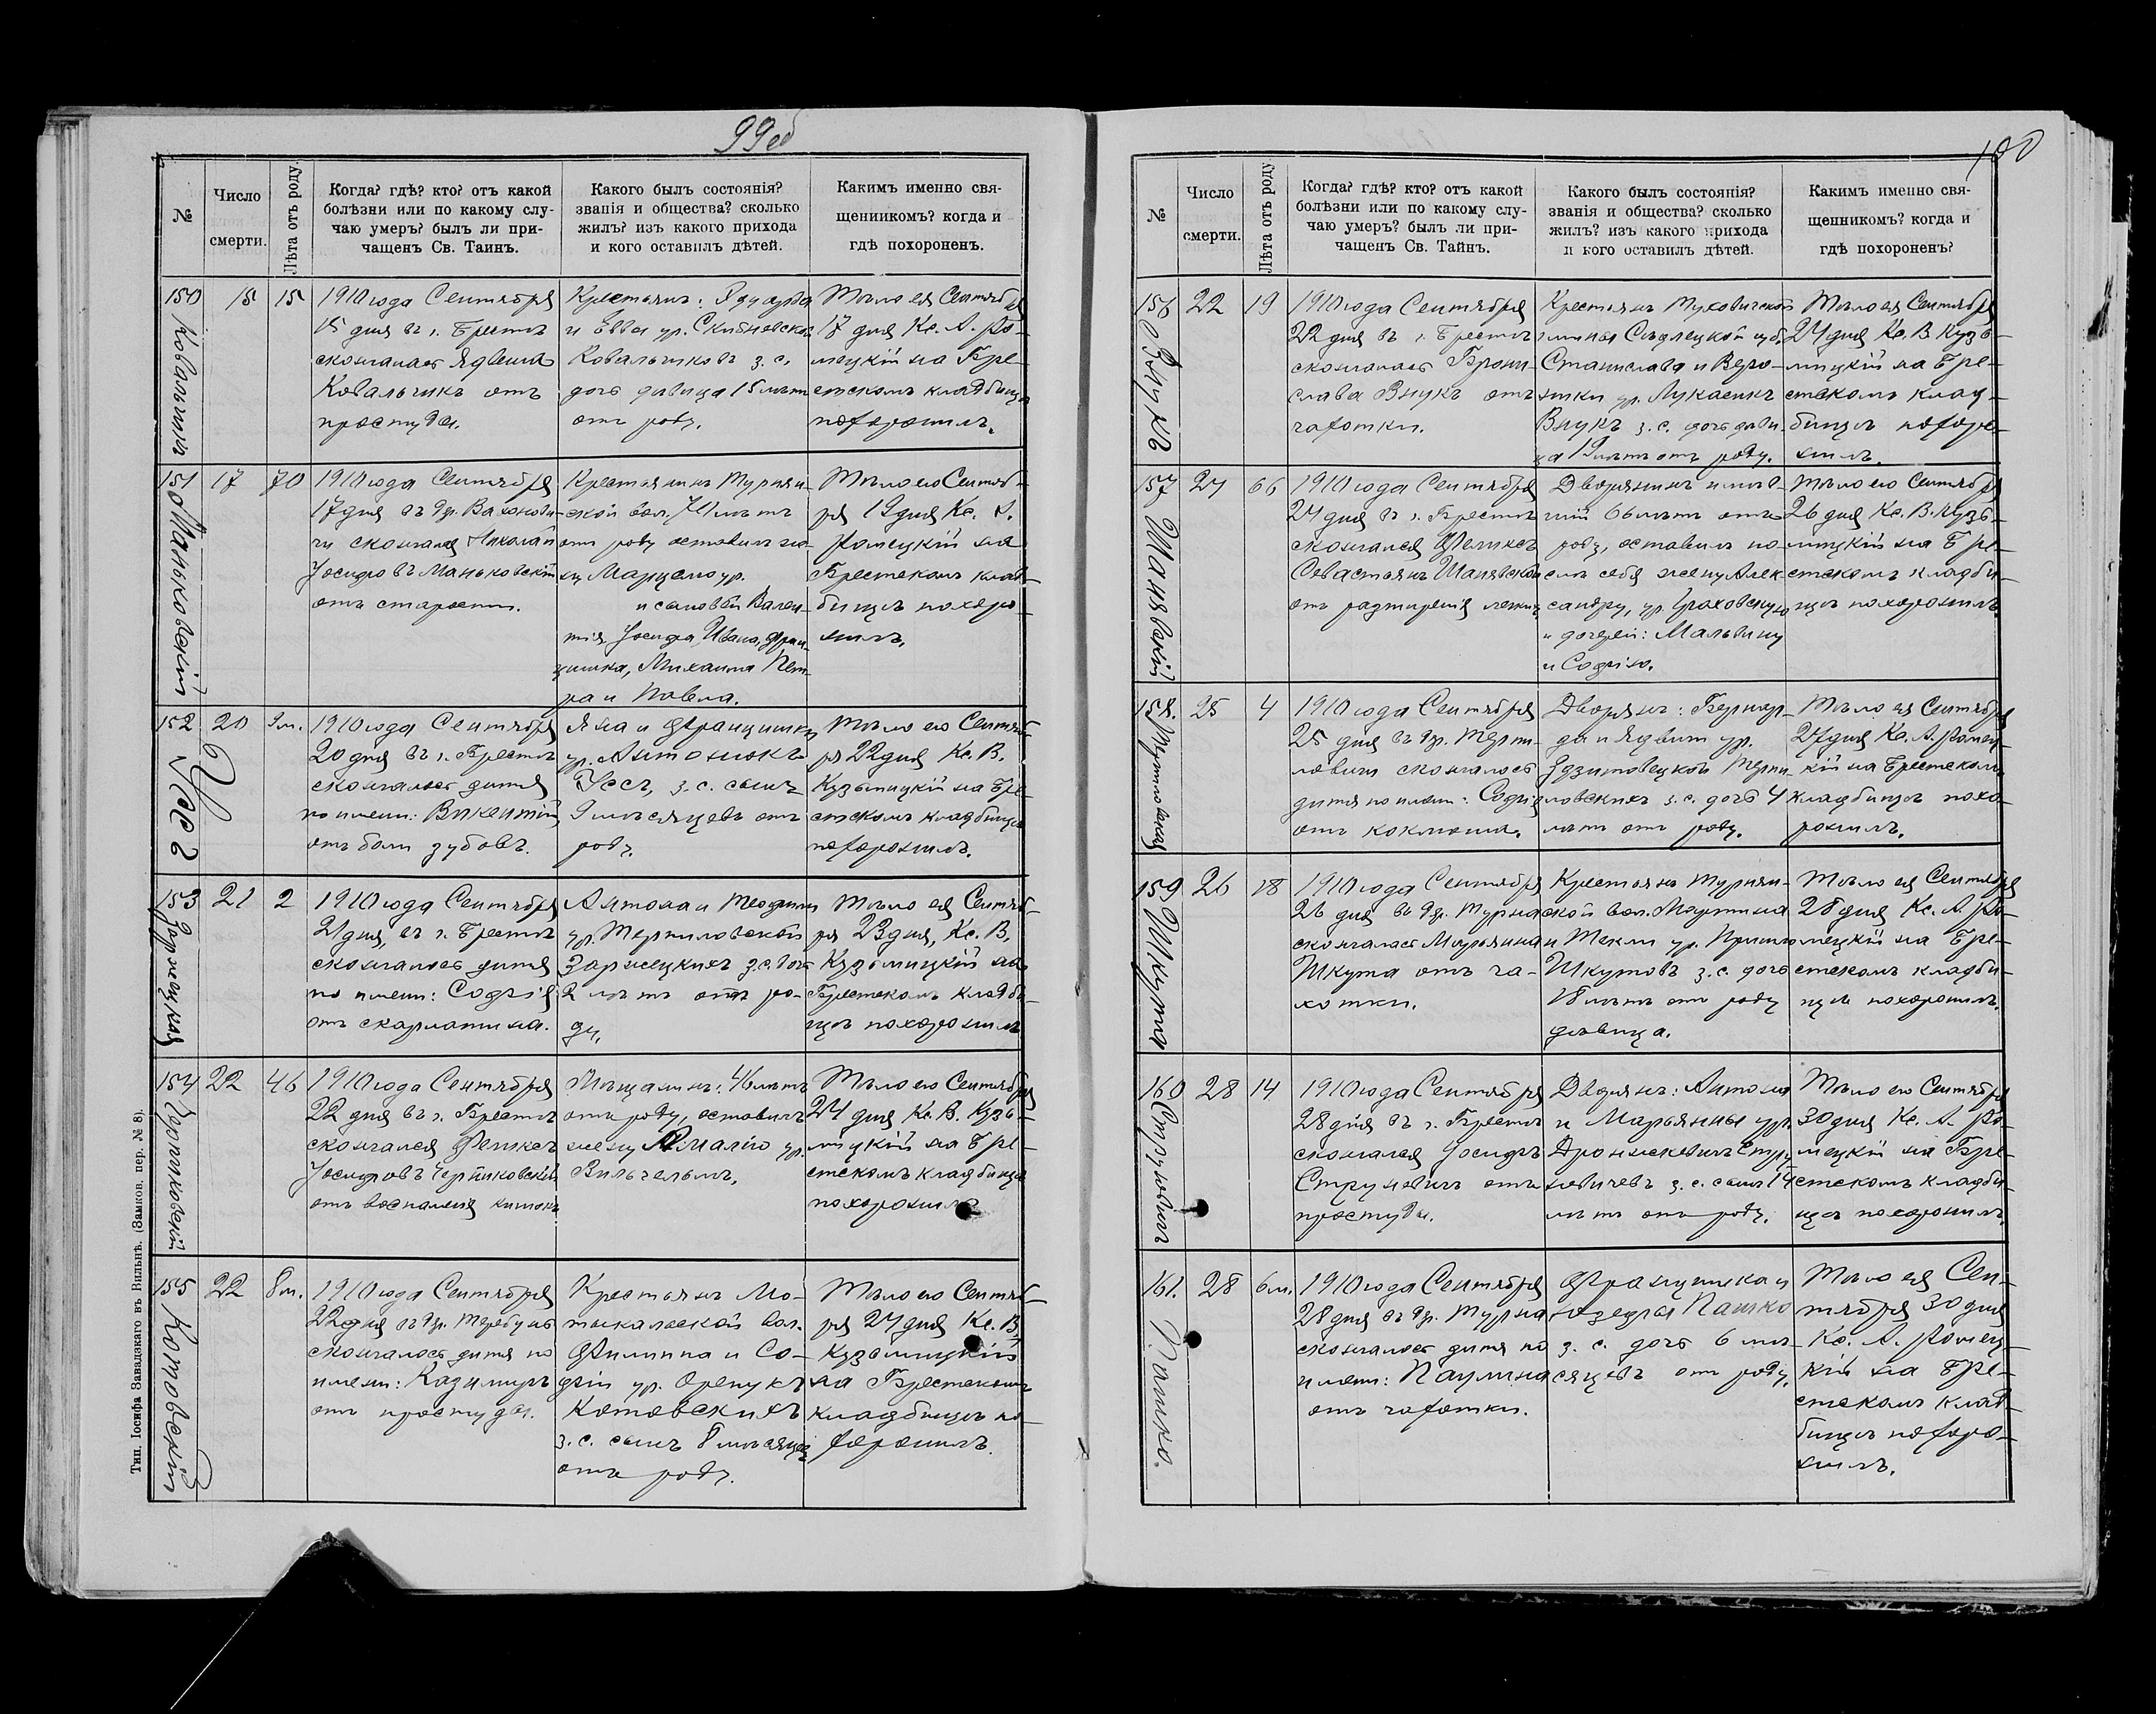 99об
№
Число смерти.
Лѣта отъ роду.
Когда? гдѣ? кто? отъ какой
болѣзни или по какому слу-
чаю умеръ? былъ ли при-
чащенъ Св. Таинъ.
Какого былъ состоянія?
званія и общества? сколько
жилъ? изъ какого прихода
и кого оставилъ дѣтей.
Какимъ именно свя-
щенникомъ? когда и
гдѣ похороненъ.
150 Ковальчикъ
15
15
1910 года Сентября
15 дня въ г. Брестѣ
скончалась Ядвига
Ковальчикъ отъ
простуды.
Крестьянъ: Эдуарда
и Еввы ур. Скибневской
Ковальчиковъ з. с.
дочь дѣвица 15 лѣтъ
отъ роду.
Тѣло ея Сентября
17 дня Кс. А. Ро-
мецкій на Бре-
стскомъ кладбищѣ
похоронилъ.
151 Маньковскій
17
70
1910 года Сентября
17 дня въ др.
скончался Николай
Іосифовъ Маньковскій
отъ старости.
Крестьянинъ Турнян-
ской вол. лѣтъ
отъ роду оставилъ же-
ну ур.
и сыновей Вален-
тія, Іосифа, Ивана, Фран-
цишка, Михаила Пет-
ра и Павла.
Тѣло его Сентяб-
ря 19 дня Кс. А.
Ромецкій на
Брестскомъ клад-
бищѣ похоро-
нилъ.
152 Уссъ
20
9 м.
1910 года Сентября
20 дня въ г. Брестѣ
скончалось дитя
по имени: Викентій,
отъ боли зубовъ.
Яна и Францишки
ур. Антонюкъ
Уссъ, з. с. сынъ
9 мѣсяцевъ отъ
роду.
Тѣло его Сентяб-
ря 22 дня Кс. В.
Кузьмицкій на Бре-
стскомъ кладбищѣ
похоронилъ.
153 Заржецкая
21
2
1910 года Сентября
21 дня, въ г. Брестѣ
скончалось дитя
по имени: Софія
отъ скарлатина.
Антона и Теофилы
ур. Терпиловской
Заржецкихъ з. с. дочь
2 лѣтъ отъ ро-
ду.
Тѣло ея Сентяб-
ря 23 дня, Кс. В.
Кузьмицкій на
Брестскомъ кладби-
щѣ похоронилъ
154 Черниковскій
22
46
1910 года Сентября
22 дня въ г. Брестѣ
скончался Феликсъ
Іосифовъ Черниковскій
отъ воспаленія кишекъ
Мѣщанинъ: 46 лѣтъ
отъ роду, оставилъ
жену Амалію ур.
Вильгельмъ.
Тѣло его Сентября
24 дня Кс. В. Кузь-
мицкій на Бре-
стскомъ кладбищѣ
похоронилъ
155 Котовскій
22
8 м.
1910 года Сентября
22 дня въ др. Теребунь
скончалось дитя по
имени: Казимиръ
отъ простуды.
Крестьянъ Мо-
тыкальской вол.
Филиппа и Со-
фіи ур. Орепукъ
Котовскихъ
з. с. сынъ 8 мѣсяцевъ
отъ роду.
Тѣло его Сентяб-
ря 24 дня Кс. В.
Кузьмицкій
на Брестскомъ
кладбищѣ по-
хоронилъ.
Тип. Іосифа Завадзкаго въ Вильнѣ. (Замков. пер. № 8).
100
№
Число смерти.
Лѣта отъ роду
Когда? гдѣ? кто? отъ какой
болѣзни или по какому слу-
чаю умеръ? былъ ли при-
чащенъ Св. Тайнъ.
Какого былъ состоянія?
званія и общества? сколько
жилъ? изъ какого прихода
и кого оставилъ дѣтей.
Какимъ именно свя-
щенникомъ? когда и
гдѣ похороненъ?
156 Внукъ
22
19
1910 года Сентября
22 дня въ г. Брестѣ
скончалась Брони-
слава Внукъ отъ
чахотки.
Крестьянъ
гмины Сѣдлецкой губ.
Станислава и Веро-
ники ур. Лукасикъ
Внукъ з. с. дочь дѣви-
ца 19 лѣтъ отъ роду.
Тѣло ея Сентября
24 дня Кс. В. Кузь-
мицкій на Бре-
стскомъ клад-
бищѣ похоро-
нилъ.
157 Шанявскій
24
66
1910 года Сентября
24 дня въ г. Брестѣ
скончался Феликсъ
Севастьянъ Шанявскій
отъ расширенія легкихъ
Дворянинъ имѣв-
шій 66 лѣтъ отъ
роду, оставилъ по-
слѣ себя жену Алек-
сандру, ур. Граховскую
и дочерей: Мальвину
и Софію.
Тѣло его Сентября
26 дня Кс. В. Кузь-
мицкій на Бре-
стскомъ кладби-
щѣ похоронилъ.
158.
25
4
1910 года Сентября
25 дня въ др. Терпи-
ловичи скончалось
дитя по имени: Софія
отъ коклюша.
Дворянъ: Бернар-
да и Ядвиги ур.
Здзитовецкой Терпи-
ловскихъ з. с. дочь 4
лѣтъ отъ роду.
Тѣло ея Сентября
27 дня Кс. А. Ромец-
кій на Брестскомъ
кладбищѣ похо-
ронилъ.
159 Шкута
26
18
1910 года Сентября
26 дня въ др. Турна
скончалась Марьянна
Шкута отъ ча-
хотки.
Крестьянъ Турнян-
ской вол. Мартина
и Теклы ур.
Шкутовъ з. с. дочь
18 лѣтъ отъ роду
дѣвица.
Тѣло ея Сентября
28 дня Кс. А. Ро-
мецкій на Бре-
стскомъ кладби-
щѣ похоронилъ.
160 Струневичъ
28
14
1910 года Сентября
28 дня въ г. Брестѣ
скончался Іосифъ
Струневичъ отъ
простуды.
Дворянъ: Антона
и Марьянны ур.
Дронжкевичъ Стру-
невичевъ з. с. сынъ 14
лѣтъ отъ роду.
Тѣло его Сентября
30 дня Кс. А. Ро-
мецкій на Бре-
стскомъ кладби-
щѣ похоронилъ.
161. Пашко.
28
6 м.
1910 года Сентября
28 дня въ др. Турна
скончалось дитя по
имени: Паулина
отъ чахотки.
Францишка и
Юзефы Пашко
з. с. дочь 6 мѣ-
сяцевъ отъ роду.
Тѣло ея Сен-
тября 30 дня
Кс. А. Ромец-
кій на Бре-
стскомъ клад-
бищѣ похоро-
нилъ.